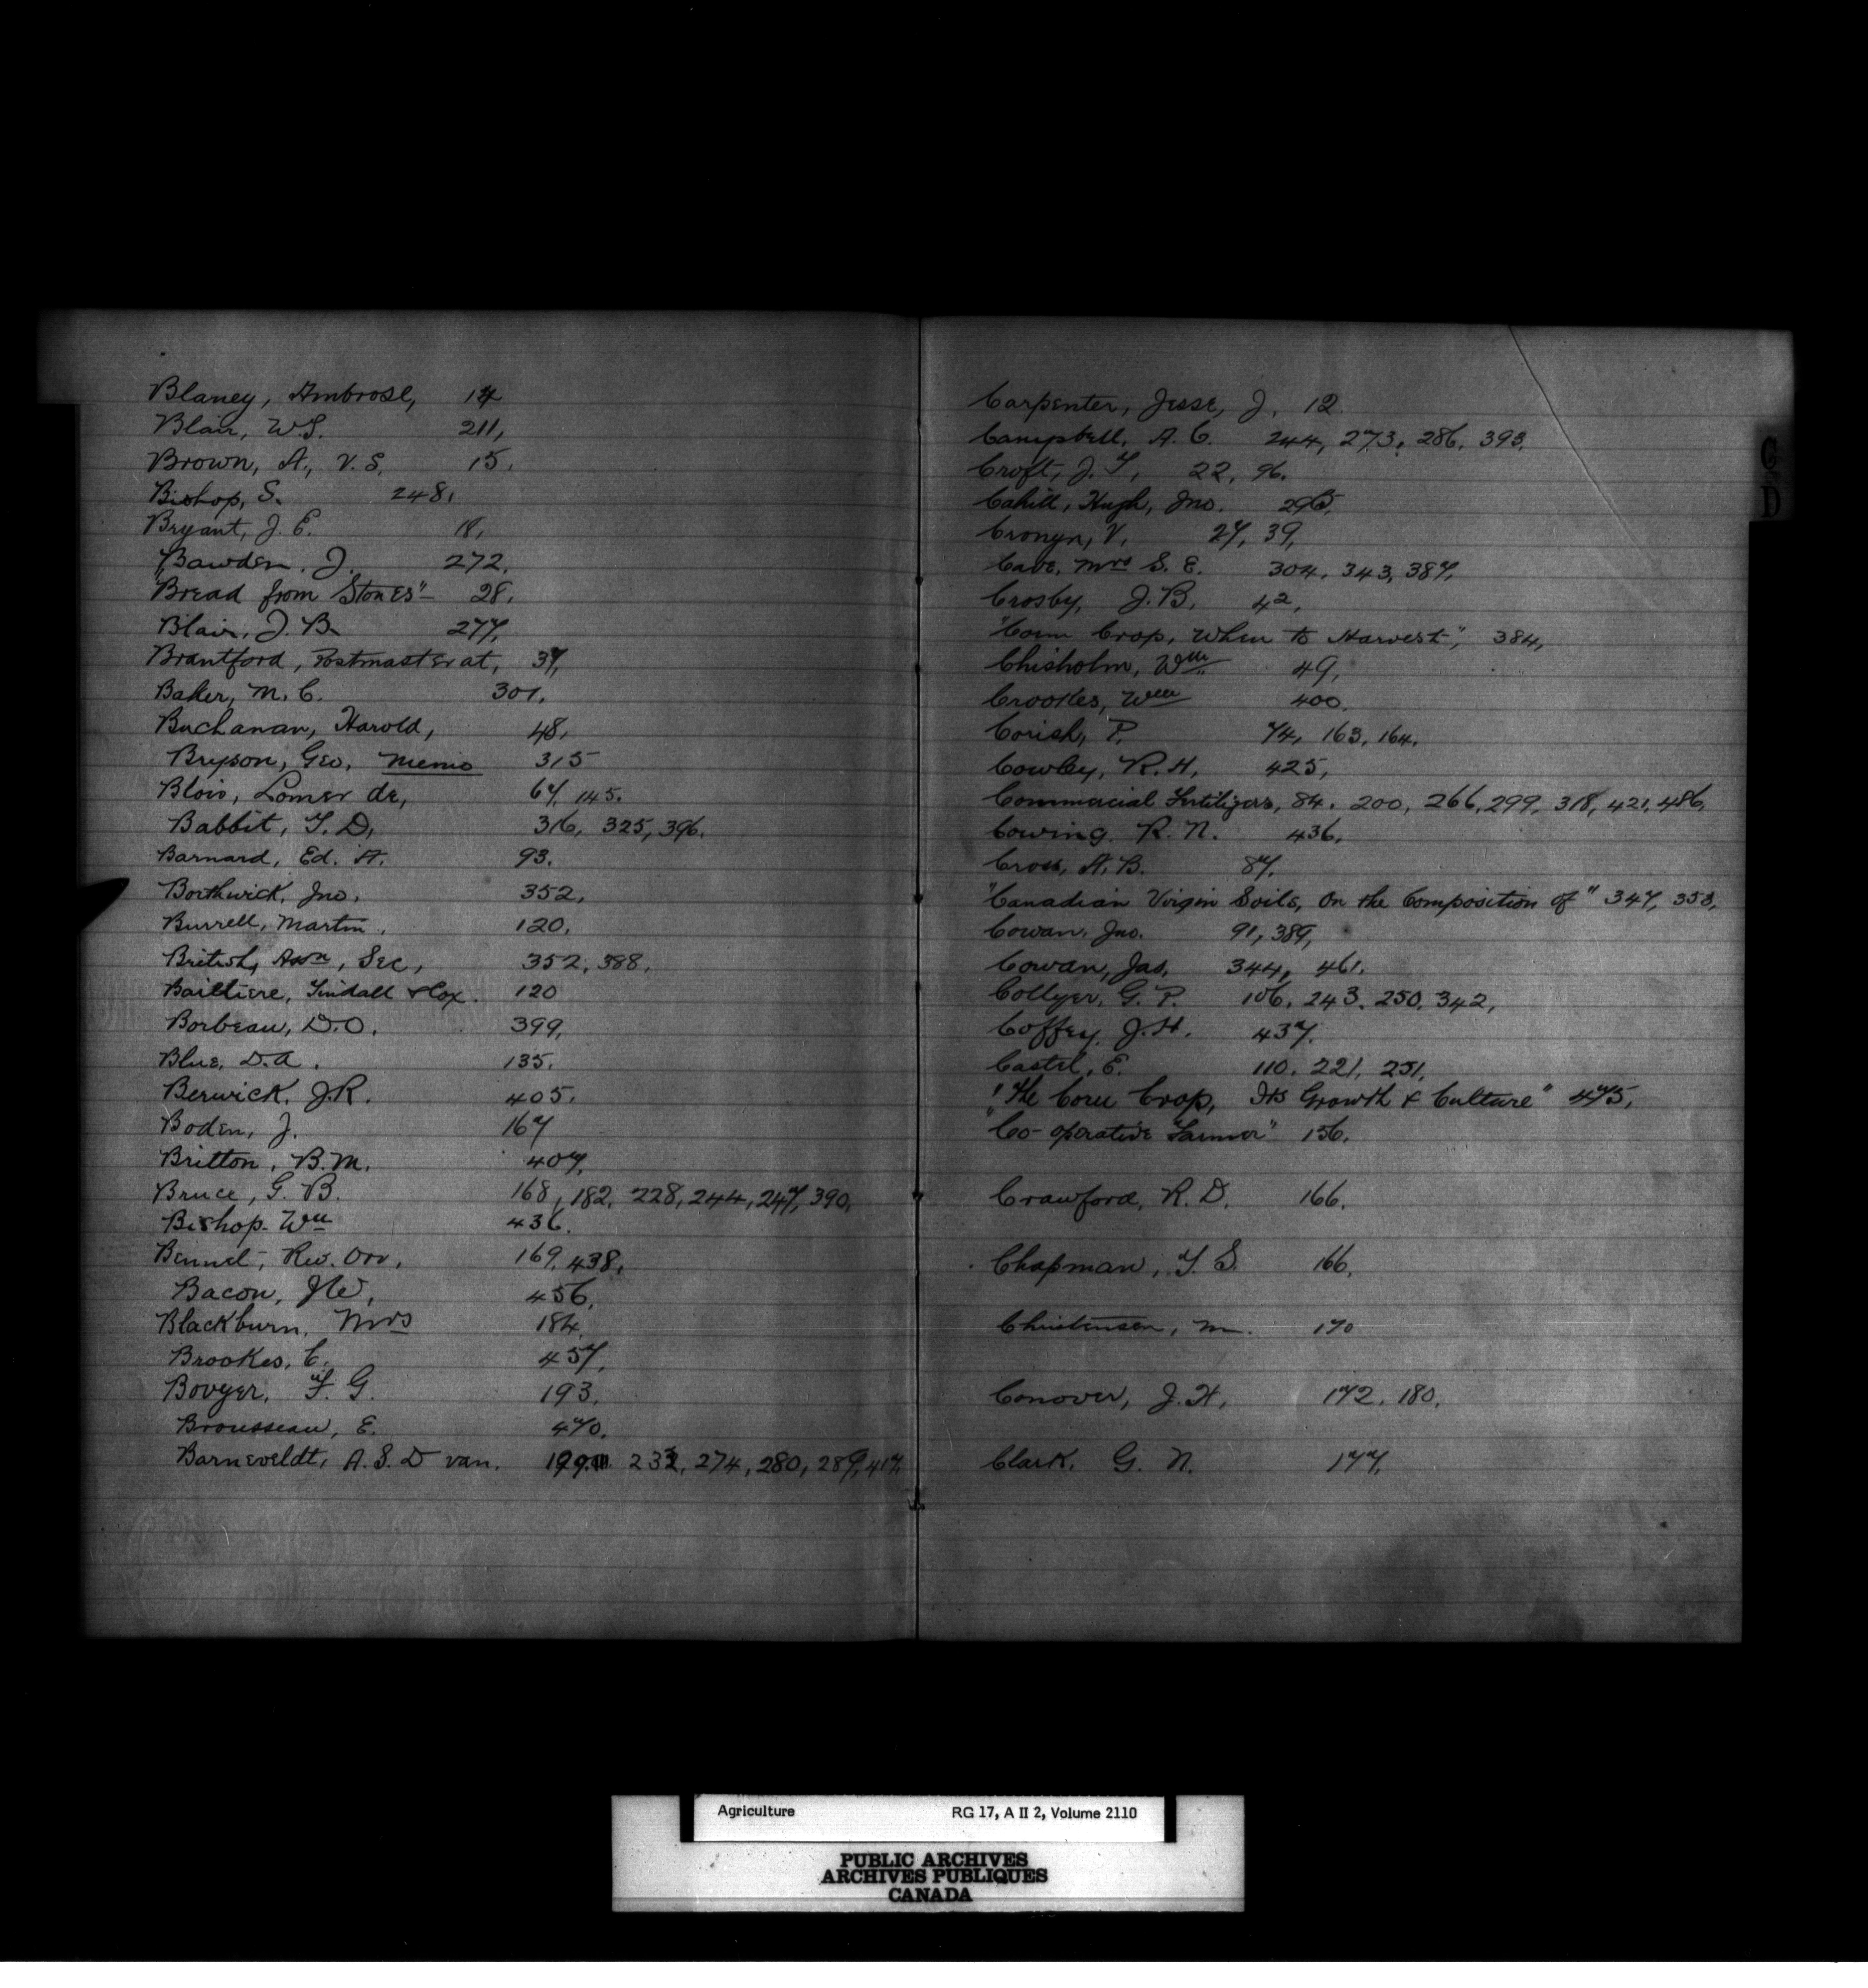 Blaney, Ambrose, 14
Blair, W.S. 211,
Brown, A., V.S. 15.
Bishop, S. 248,
Bryant, J. E. 18,
Bawden. J. 272.
"Bread from Stones" 28.
Blair, J. B. 277,
Brantford, Postmaster at, 37,
Baker, M. C. 301.
Buchanan, Harold, 48,
Bryson, Geo. Memo 315
Blois, Lomer de, 67, 145.
Babbit, T. D, 316, 325, 396.
Barnard, Ed. A. 93.
Borthwick, Jno. 352,
Burrell, Martin, 120,
British, Assn, Sec, 352, 388,
Bailliere, Tindall & Cox. 120
Borbeau, D.O. 399,
Blue, D.A. 135.
Berwick, J.R. 405.
Boden, J. 167
Britton, B.M. 407,
Bruce, G. B. 168, 182, 228, 244, 247, 390,
Bishop. Wm 436.
Bennet, Rev. Orr, 169, 438,
Bacon, J W, 456,
Blackburn, Mrs 184,
Brookes, C. 457,
Bovyer, F. G. 193.
Brousseau, E. 470.
Barneveldt, A. S. D van. 199, 232, 274, 280, 289, 417,
Carpenter, Jesse, J, 12
Campbell, A. C. 244, 273, 286, 393.
Croft, J. T, 22, 96.
Cahill, Hugh, Jno. 295,
Cronyn, V, 27, 39,
Cave, Mrs S. E. 304, 343, 387,
Crosby, J. B. 42,
"Corn Crop, When to Harvest", 384,
Chisholm, Wm 49,
Crookes, Wm 400.
Corish, P. 74, 163, 164.
Cowley, R. H, 425,
Commercial Fertilizers, 84. 200, 266, 299, 318, 421, 486,
Cowing. R. N. 436,
Cross, A. B. 87,
"Canadian Virgin Soils, On the Composition of" 347, 353,
Cowan, Jno. 91, 389,
Cowan, Jas, 344, 461.
Collyer, G. P. 106, 243, 250, 342,
Coffey. J. H. 437.
Castel, E. 110, 221, 251,
"The Corn Crop, Its Growth & Culture" 475,
"Co-operative Farmer" 156.
Crawford, R. D. 166.
Chapman, T. S. 166,
Christensen, M. 170
Conover, J. H, 172, 180,
Clark, G. N. 177,
C
D
Agriculture RG 17, A II 2, Volume 2110
PUBLIC ARCHIVES
ARCHIVES PUBLIQUES
CANADA